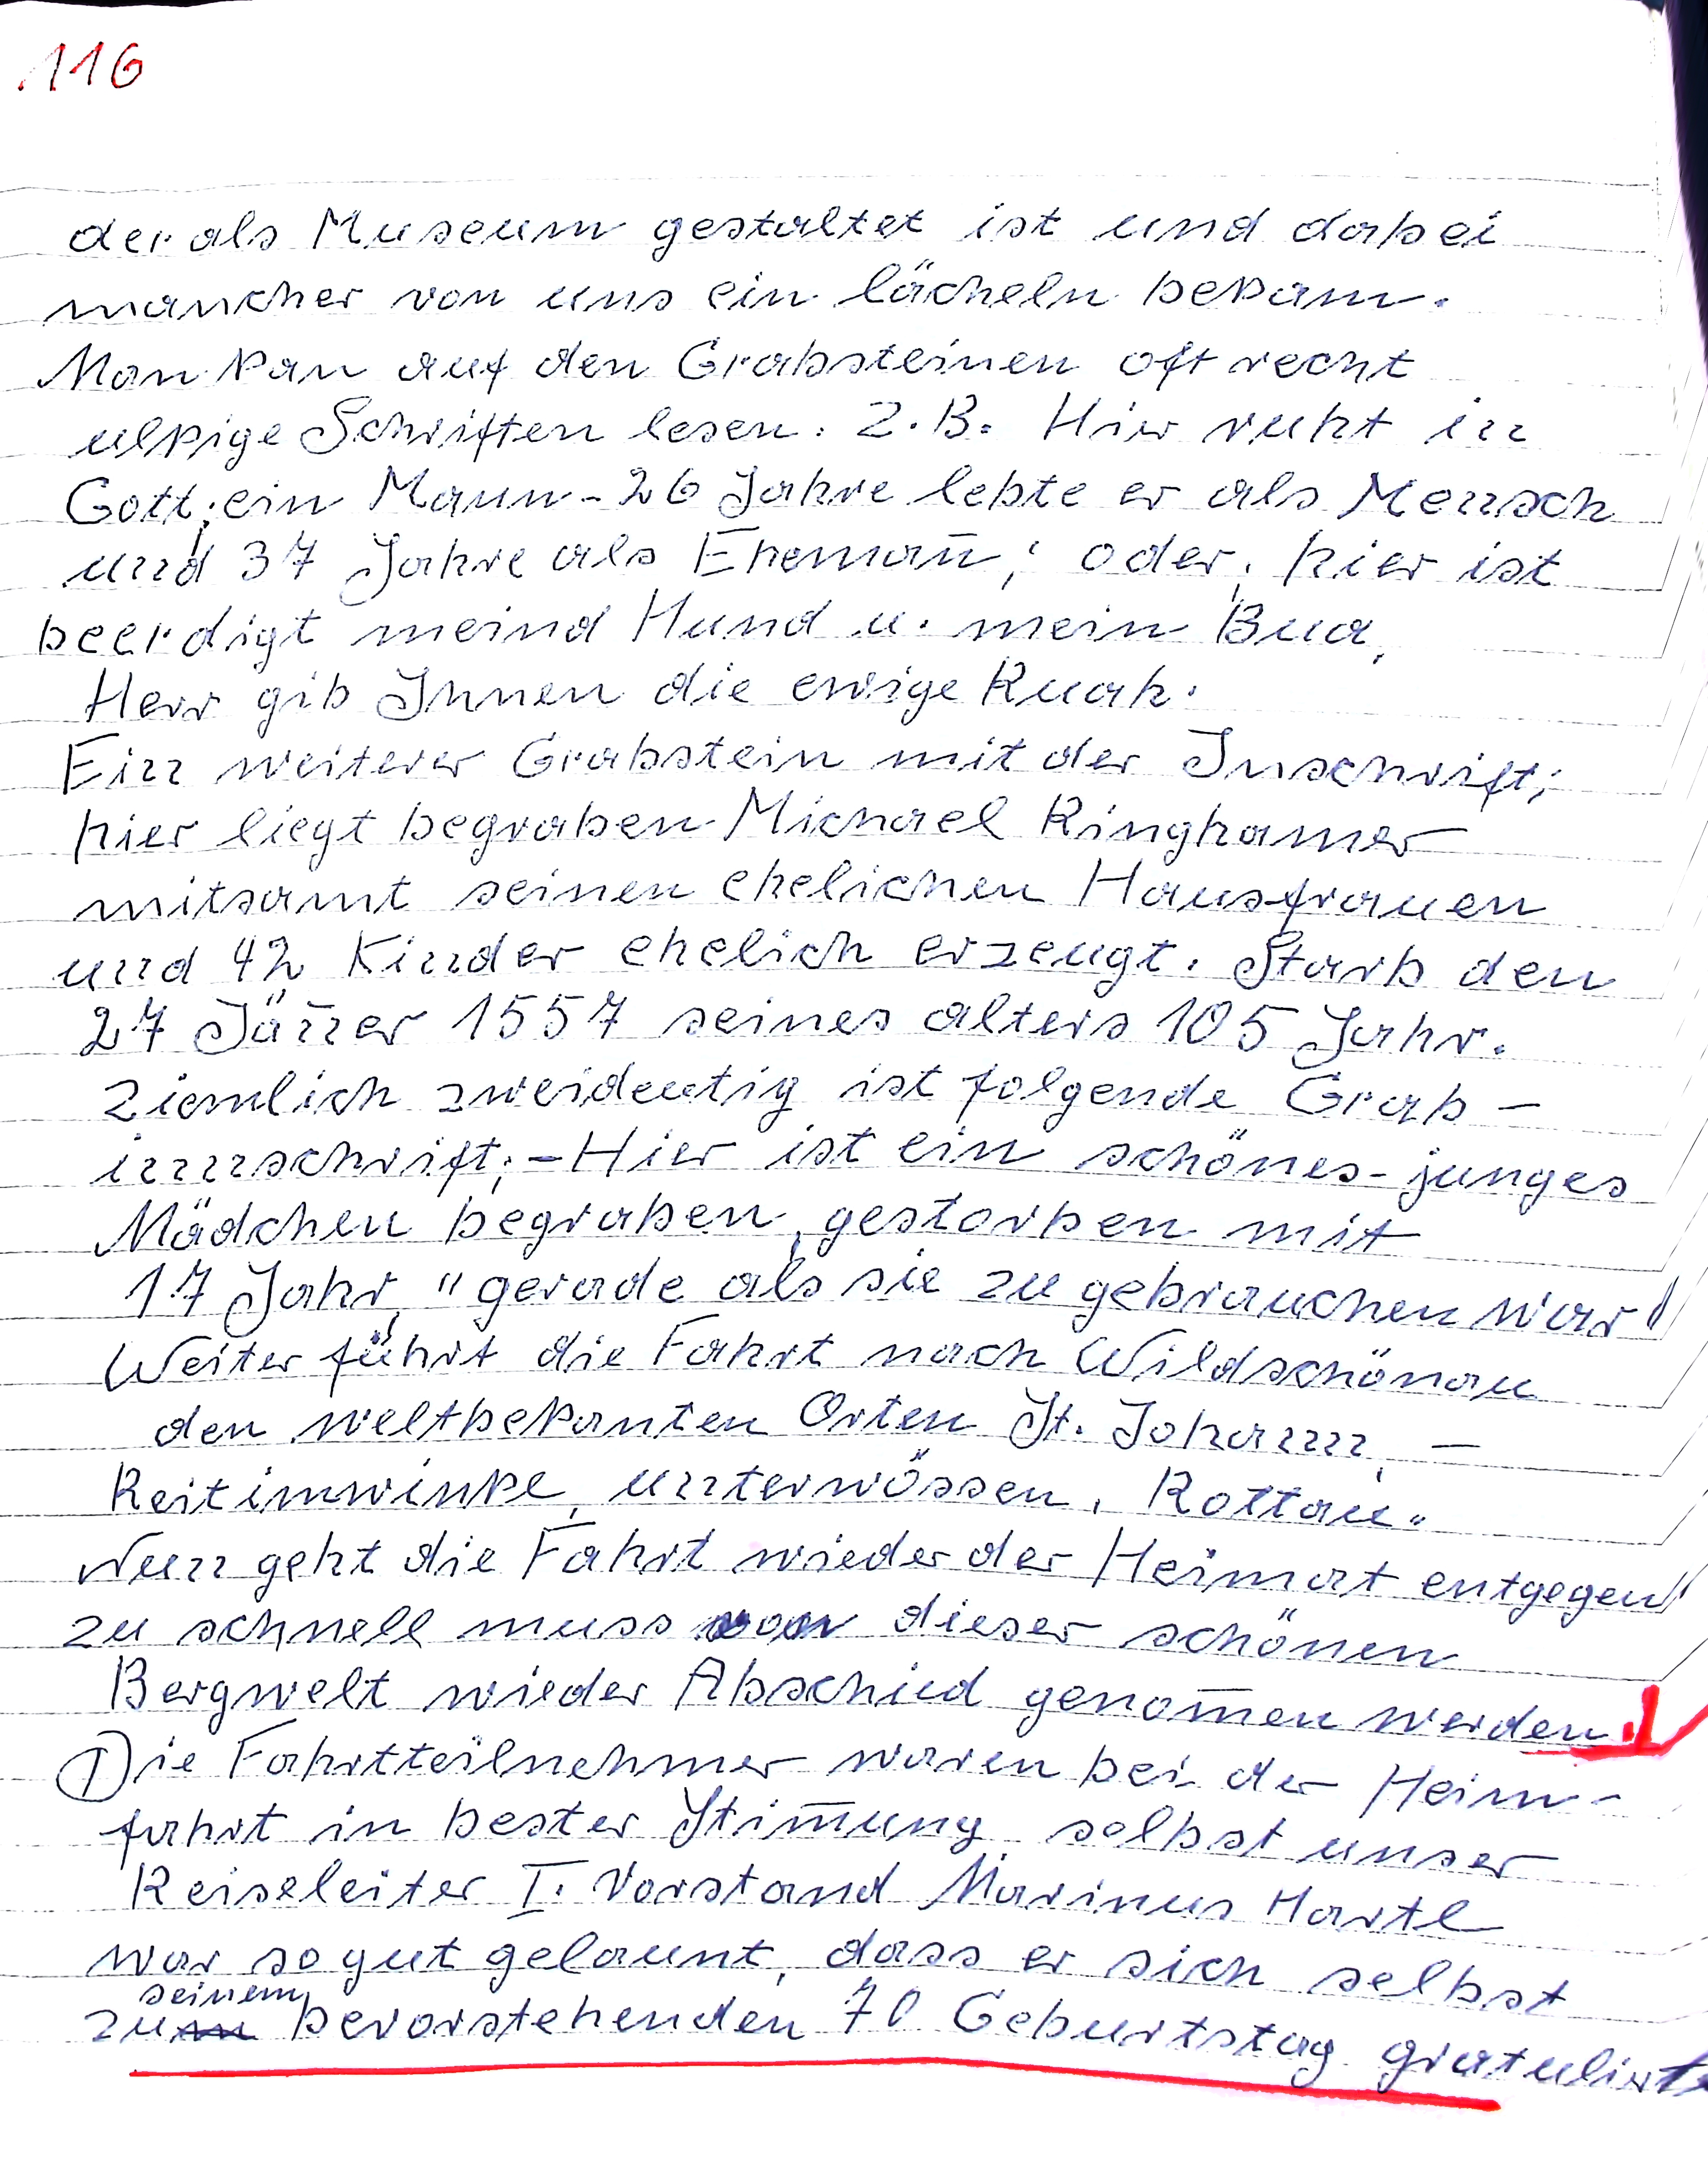 116
der als Museum gestaltet ist und dabei
mancher von uns ein lächeln bekam.
Man kan auf den Grabsteinen oft recht
ulkige Schriften lesen. Z.B. Hier ruht in
Gott; ein Mann - 26 Jahre lebte er als Mensch
und 37 Jahre als Ehemañ; oder, hier ist
beerdigt meind Hund u. mein Bua,
Herr gib Ihnen die ewige Ruah.
Ein weiterer Grabstein mit der Inschrift;
hier liegt begraben Michael Ringhamer
mitsamt seinen ehelichen Hausfrauen
und 42 Kinder ehelich erzeugt. Starb den
27 Jäñer 1557 seines alters 105 Jahr.
Ziemlich zweideutig ist folgende Grab -
innschrift; - Hier ist ein schönes - junges
Mädchen begraben, gestorben mit
17 Jahr, " gerade als sie zu gebrauchen war"
Weiter führt die Fahrt nach Wildschönau
den weltbekanten Orten St. Johann, -
Reitimwinkl, unterwössen, Rottau.
Nun geht die Fahrt wieder der Heimat entgegen
zu schnell muss von dieser schönen
Bergwelt wieder Abschied genom̄en werden.
Die Fahrtteilnehmer waren bei der Heim-
fahrt in bester Stim̄ung selbst unser
Reiseleiter I. Vorstand Marinus Hartl
war so gut gelaunt, dass er sich selbst
seinem
zu bevorstehenden 70 Geburtstag gratulierte